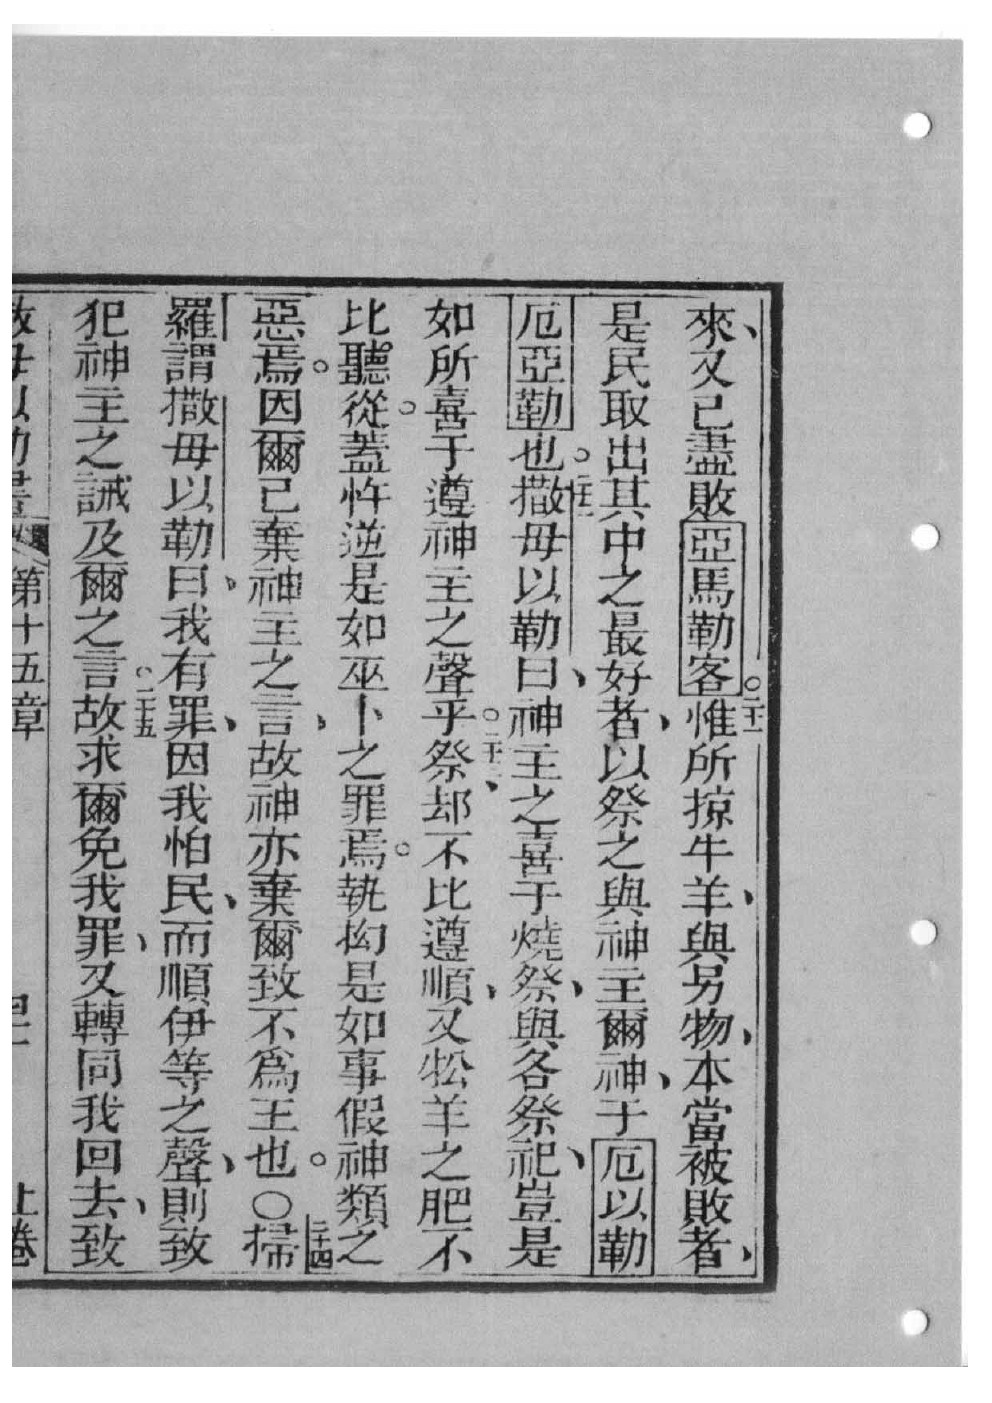 來又已盡敗亞馬勒客二十一惟所掠牛羊與另物本當被敗者
是民取出其中之最好者以祭之與神主爾神于厄以勒
厄亞勒也二十二撒母以勒曰神主之喜于燒祭與各祭祀豈是
如所喜于遵神主之聲乎二十三祭却不比遵順又牲羊之肥不
比聽從蓋忤逆是如巫卜之罪焉執拘是如事假神類之
惡焉因爾已棄神主之言故神亦棄爾致不為王也〇二十四掃
羅謂撒母以勒曰我有罪因我怕民而順伊等之聲則致
犯神主之誡及爾之言二十五故求爾免我罪又轉同我回去致
撒母以勒書 第十五章 上卷